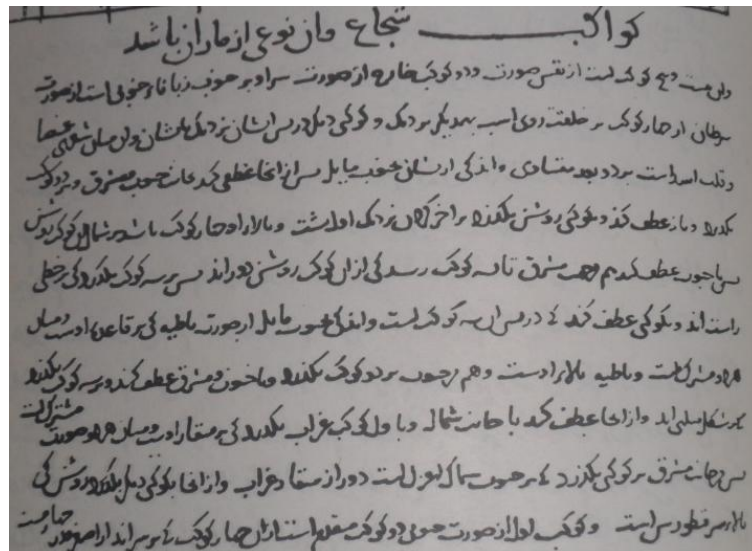 کواکب شجاع وان نوعی از ماران باشد
وان بیست و پنج کوکب است از نفس صورت و دو کوکب خارج از صورت سر او بر جنوب زبانا جنوبی است از صورت
سرطان از چهار کوکب بر خلقت روی اسب بیکدیگر نزدیک و کوکبی دیگر در پس ایشان نزدیک بایشان وان میان شعری غمیصا
و قلب اسد است بر دو بعد متساوی و اندکی از ایشان بجنوب مایل پس از انجا عطفی کند بجانب جنوب مشرق و بر دو کوکب
بگذرد و باز عطف کند و بکوکبی روشن بگذرد بر اخر گردن نزدیک اول پشت و بالای او چهار کوکب باشد بر شمال این کوکب روشن
پس با جنوب عطف کند هم وجهت مشرق تا به کوکب رسد کی از ان کوکب روشن دوراند پس بر سه کوکب بگذرد کی بر خطی
راست اند و بکوکبی عطف کند کی در پس ان سه کوکب است و اندکی بجنوب مایل از صورت باطیه کی بر قاعده اوست و میان
هر دو مشترک است و باطیه بالای اوست وهم در جنوب بر دو کوکب بگذرد وبا جنوب ومشرق عطف کند و بر سه کوکب بگذرد
کی بر شکل مثلثی اند و از انجا عطف کند با جانب شمال و با اول کوکب غراب بگذرد کی بر منقار اوست و میان هر دو صورت مشترک است
پس در جانب مشرق بر کوکبی بگذرد کی بر جنوب سماک اعزل است دور از منقار غراب و از انجا بکوکبی دیگر بگذرد روشن کی
بالای سر قنطورس است و کوکب اول از صورت جنوبی دو کوکب مقدم است از ان چهار کوکب کی بر سر اند از اصغر قدر چهارمست